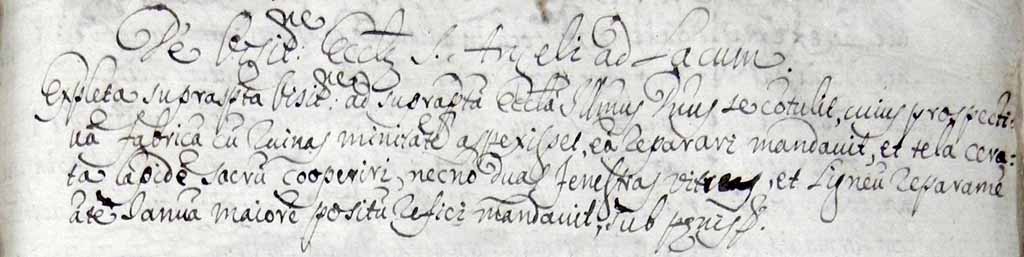 De visit:ne Eccłæ S. Angeli ad Lacum.
Expleta suprascpta visit:ne, ad suprapta Eccła Illmus Dnus se cotulit, cuius prospecti-
va fabrica cu ruinas minitate aspexisset, ea reparari mandavit, et tela cera-
ta lapide sacru cooperiri, necno duas fenestras vitreas, et ligneu reparame
ate Janua maiore positu refici mandavit, sub